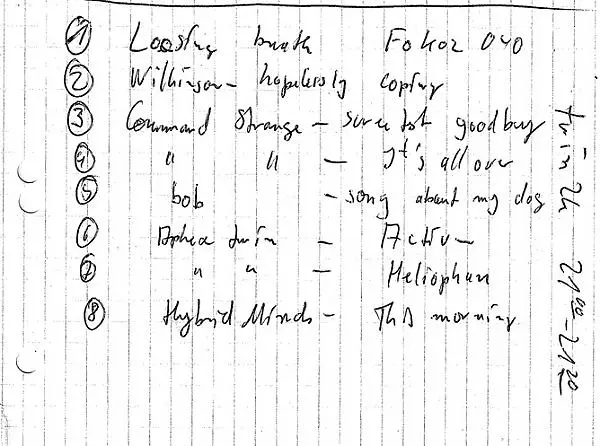 ① Loosing breath Fokoz 040
② Wilkinson – hopelessly coping
③ Command Strange – sweetest goodbuy
④ " " – It's all over
⑤ bob – song about my dog
⑥ Aphex twin – Actiu –
⑦ " " – Heliophan
⑧ Hybrid Minds – This morning
21⁰⁰ – 21²⁰